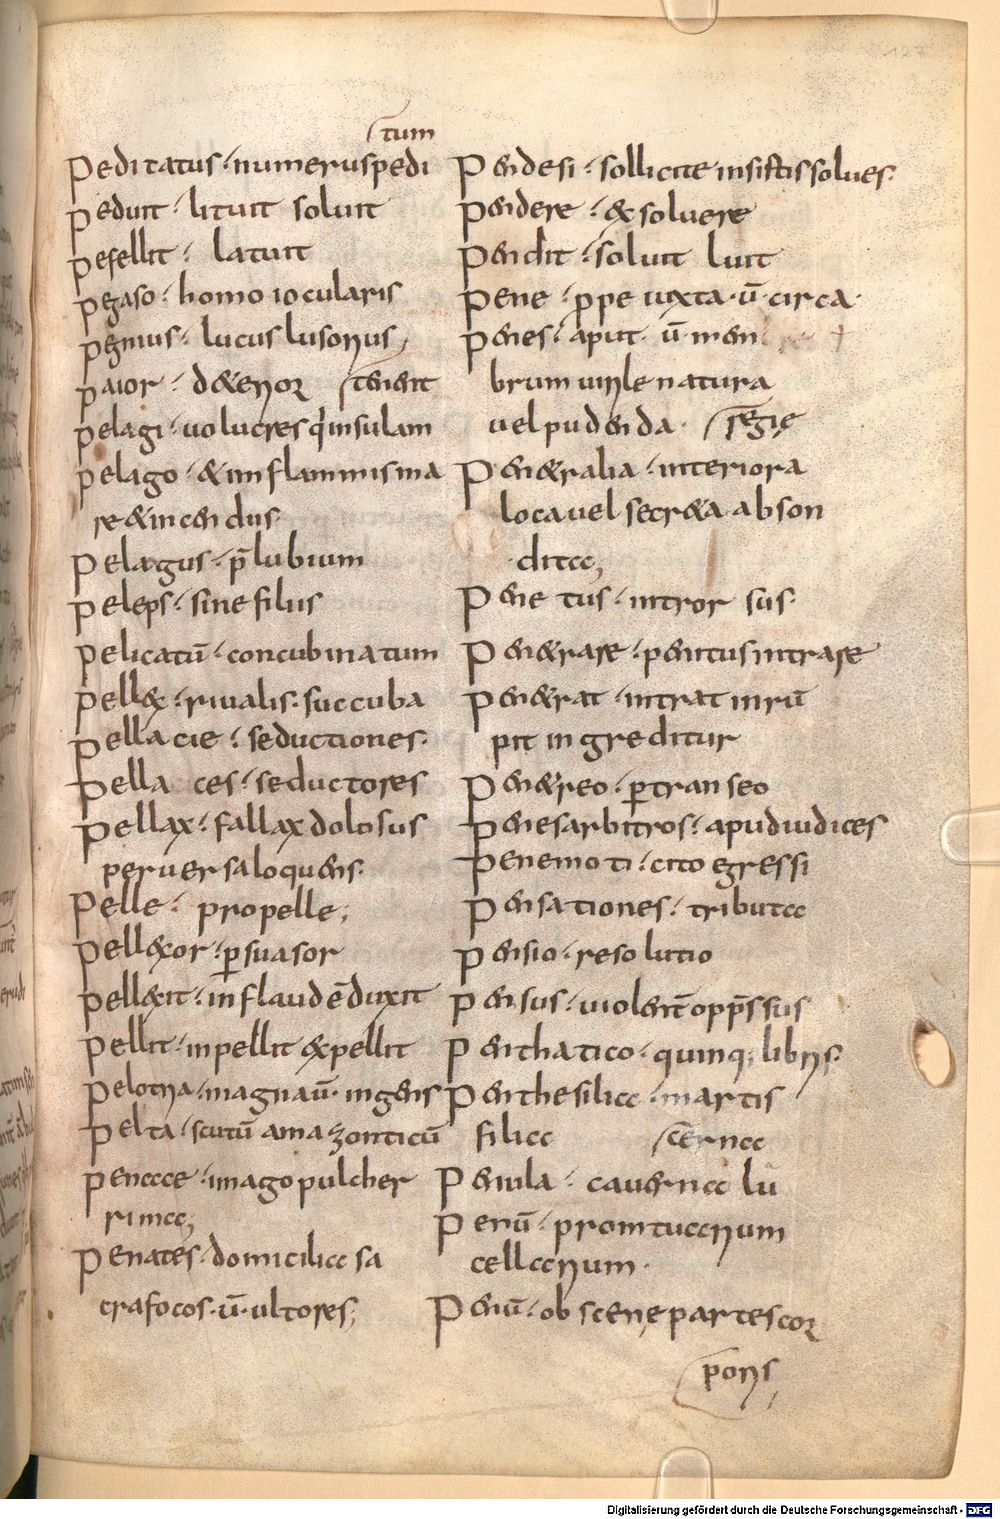 127
tum
Peditatus · numerus pedi
Peduit · lituit soluit
Pefellit · latuit
Pegaso · homo iocularis
Pegmus · lucus lusorius
Paior · d&erior tenent
Pelagi · uolucres q insulam
Pelago · & im flammis ma
re & incendus
Pelagus · p̄lubium
Peleps · sine filus
Pelicatū · concubinatum
Pellex · riualis · succuba
Pellacie · seductiones ·
Pellaces · seductores
Pellax · fallax dolosus
peruersa loquens ·
Pelle · propelle ;
Pellexor · persuasor
Pellexit · in flaudē duxit
Pellit · inpellit expellit
Peloria · magna ū · ingens
Pelta · scutū amazonticū
Penace · imago pulcher
rima ;
Penates · domicilia sa
cra focos · ū · ultores ;
Pendesi · sollicite insistis solues ·
Pendere · & soluere
Pendit · soluit luit
Pene · prope iuxta · ū · circa ·
Penes · aput · ū · men
brum uirile natura
uel pudenda · regie
Penetralia · interiora
loca uel secreta abson
dita ;
Penetus · intror sus ·
Penetrare · penitus intrare
Penetrat · intrat inrū
pit ingreditur
Penetreo · pertranseo
Penes arbitros · apud iudices
Penemoti · cito egressi
Pensationes · tributa
Pensio · resolutio
Pensus · uiolent opp̄ssus
Penthatico · quinq; libris ·
Penthesilia · martis
filia cerna
Penula · cauerna lu
Penū · promtuarium
cellarium ·
Penū · obscene partes cor
poris
Digitalisierung gefördert durch die Deutsche Forschungsgemeinschaft - DFG